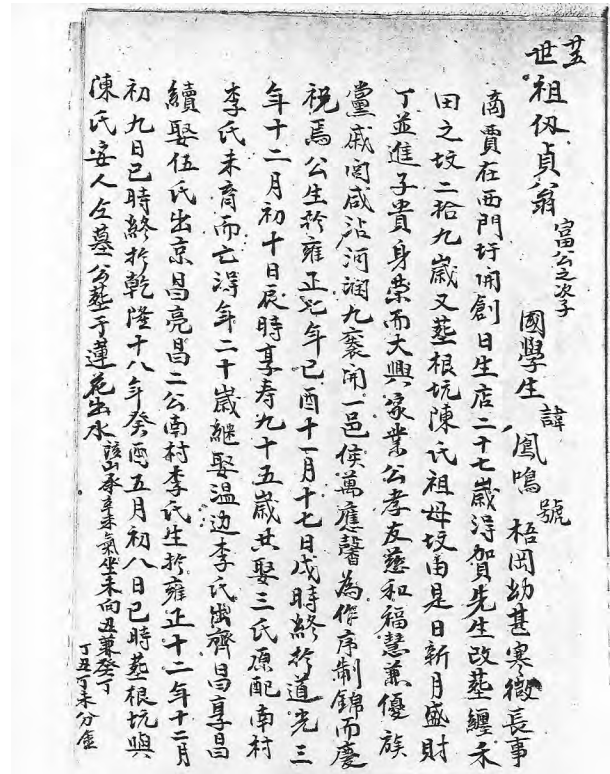 廿五
世祖仭貞翁富公之次子國學生諱鳳鳴號梧岡幼甚寒微長事
商賈在西門圩開創日生店二十七歲淂加賀先生改塟纏禾
田之坟二拾九歲又塟根坑陳氏祖母坟由是日新月盛財
丁並進子貴身榮而大興家業公孝友慈和福慧兼優族
黨戚閭咸沾河潤九袠開一邑侯萬應馨為作序制錦而慶
祝焉公生於雍正七年己酉十一月十七日戌時終於道光三
年十二月初十日辰時享寿九十五歲共娶三氏原配南村
李氏未育而亡淂年二十歲継娶溫边李氏出齊昌享昌
續娶伍氏出京昌亮昌二公南村李氏生於雍正十二年十二月
初九日巳時終於乾隆十八年癸酉五月初八日巳時塟根坑與
陳氏安人仝墓公塟于蓮花出水該山承辛未氣坐未向丑兼癸丁
丁丑丁未分金